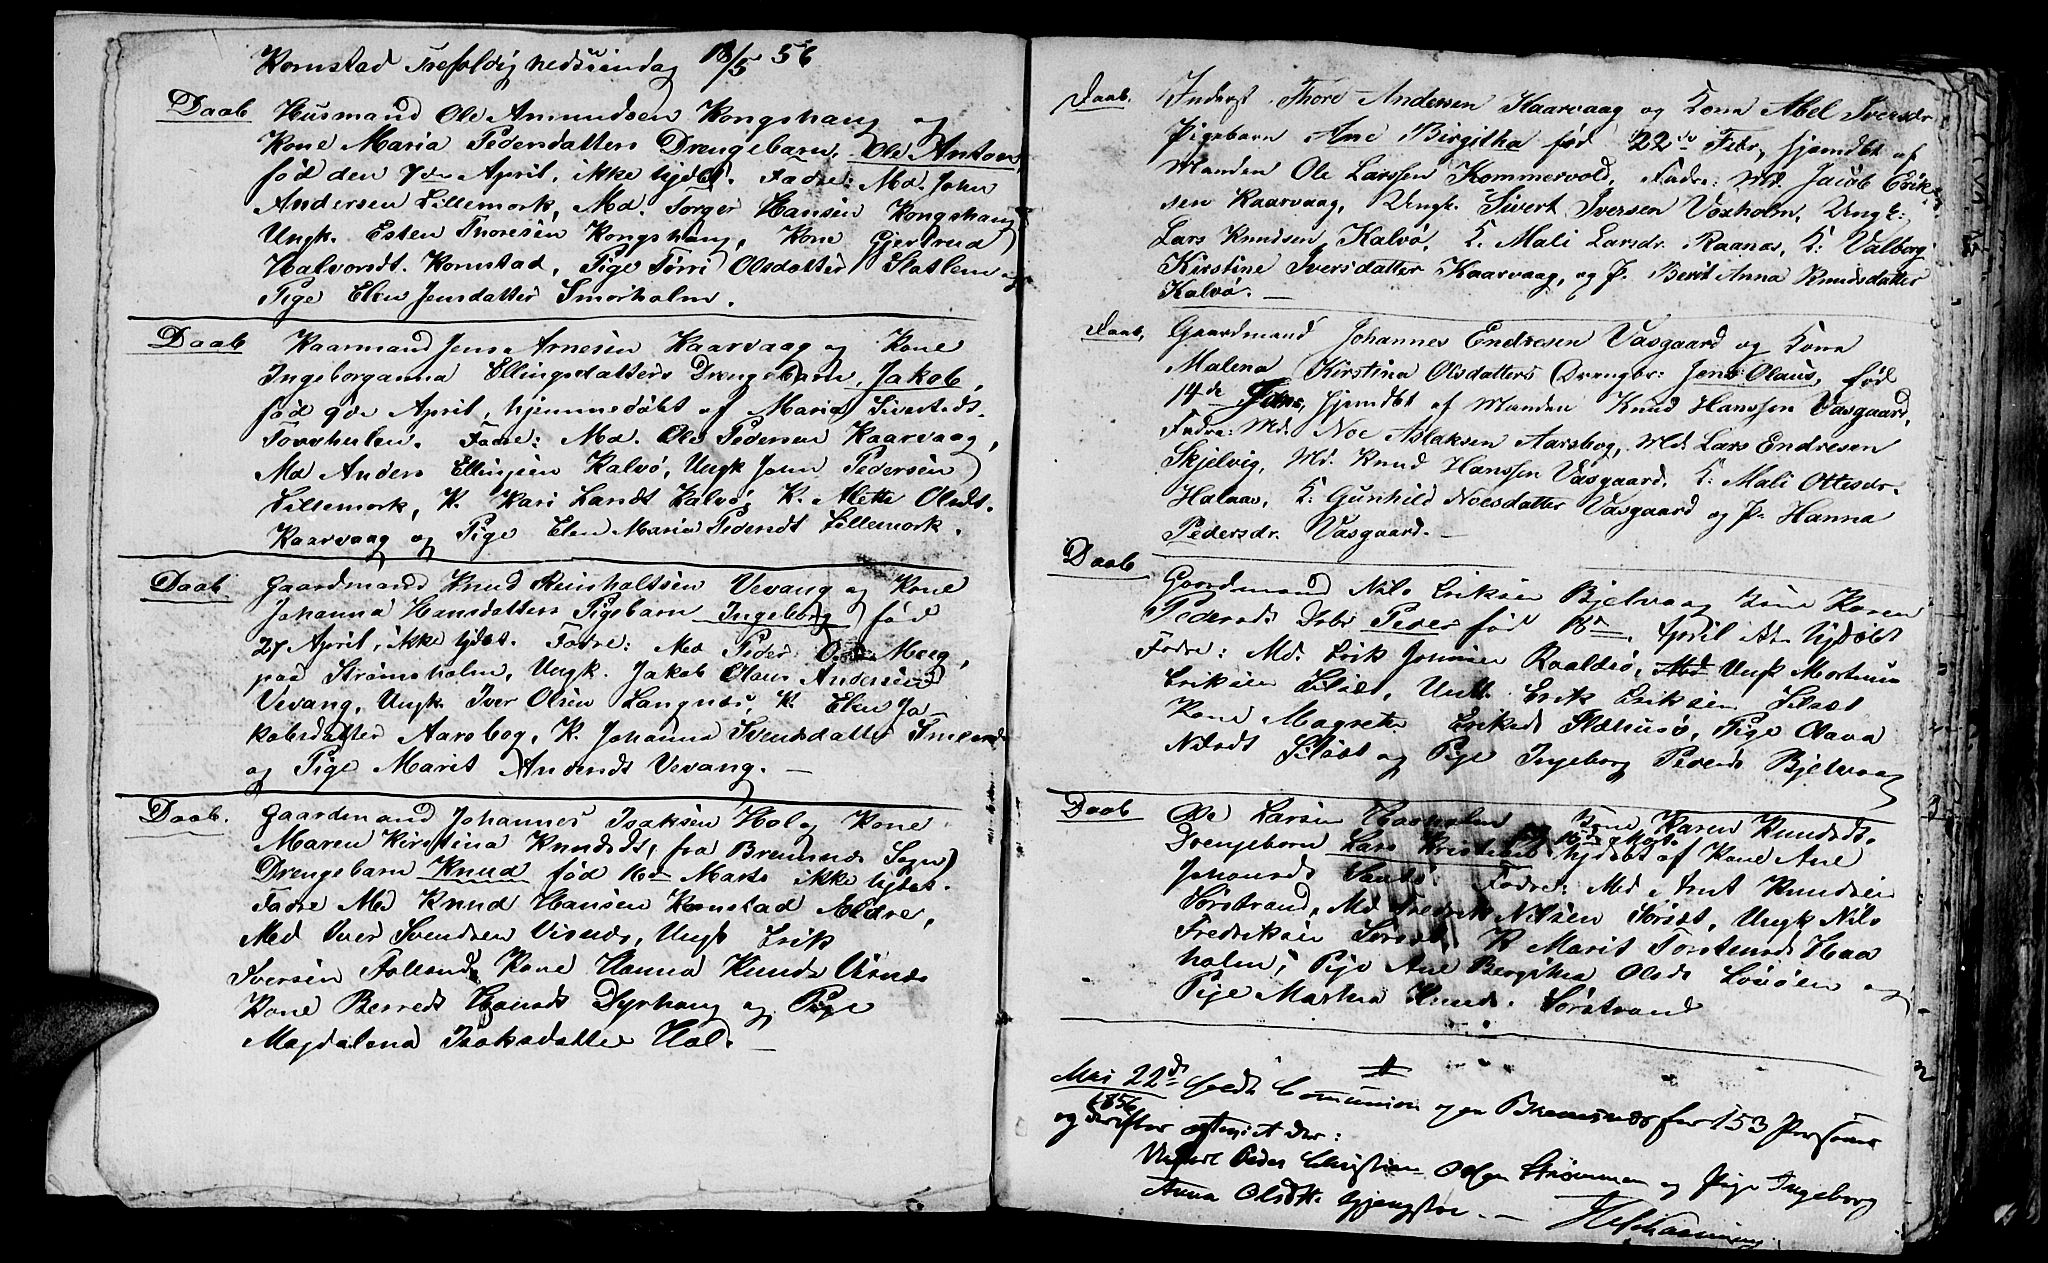 Kornstad Trefoldighedssøndag 18/5 56
Daab Husmand Ole Amundsen Kongshaug og
Kone Maria Pedersdatters Drengebarn, Ole Anton,
fød den 7de April, ikke hjdbt. Fadre: Md. John
Andersen Lillemork, Md. Torger Hansen Kongshaug
Ungk. Esten Thoresen Kongshaug, Kone Gjertrud
Halvorsdt. Kornstad, Pige Törri Olsdatter Slatlem og
Pige Elen Jensdatter Smorholm.
Daab Kaarmand Jens Arnesen Kaarvaag og Kone
Ingeborganna Ellingsdatters Drengebarn, Jakob,
fød 9de April, hjemmedøbt af Maria Siverts ds.
Fadre: Md. Ole Pedersen Kaarvaag,
Md Anders Ellingsen Kalvø, Ungk John Pedersen
Lillemork, K. Kari Larsdt Kalvø, K. Mette Olsdt.
Kaarvaag og Pige Elen Maria Pedersdt Lillemork.
Daab. Gaardmand Knud Reinholtsen Vevang og Kone
Johanna Hansdatters Pigebarn Ingeborg fød
27 April, ikke hjdbt. Fadre: Md Peder Meeg,
paa Strömsholm, Ungk. Jakob Olaus Andersen
Vevang, Ungk. Iver Olsen Langnes, K. Elen Ja-
kobsdatter Aarsbog, K. Johanna Svensdatter
og Pige Marit Andersdt Vevang. —
Daab. Gaardmand Johannes Isaksen Hol og Kone
Maren Kirstina Knudsdt, fra Bremsnes Sogn
Drengebarn Knud fød 16de Marts ikke hjdbt.
Fadre Md Knud Hansen Kornstad Ældre,
Md Iver Svendsen Visnes, Ungk Erik
Iversen Folland, Kone Hanna Knudsd Visnes
Kone Berret Hansdt Dyrhaug og Pige
Magdalena Isaksdatter Hol. —
Daab. Inderst Thore Andersen Kaarvaag og Kona Abel Iversdr
Pigebarn Ane Birgitha fød 22de Febr, hjemdbt af
Manden Ole Larssen Kommervold, Fadre: Md. Jacob Erik-
sen Kaarvaag, Ungk. Sivert Iversen Voxholm, Ungk:
Lars Knudsen Kalvø, K. Mali Larsdr. Raanes, K. Valborg
Kirstine Iversdatter Kaarvaag, og P. Berit Anna Knudsdatter
Kalvø. —
Daab. Gaardmand Johannes Endresen Vasgaard og Kona
Malena Kirstina Olsdatters Drengbr: Jens Olaus, fød
14de hjemdbt af Manden Knud Hanssen Vasgaard,
Fadre: Md. Noe Aslaksen Aarsbog, Md. Lars Endresen
Skjelvig, Md. Knud Hanssen Vasgaard, K. Mali Ottesdr.
Halaas, K: Gunhild Noesdatter Vasgaard og P. Hanna
Pedersdr. Vasgaard. —
Daab Gaardmand Nils Eriksen Bjelvaag Kone Karen
Pedersdt Drbr Peder fød 18de April hjdøbt
Fadre: Md. Erik Johnsen Raaldsø, Md Ungk Mortinus
Eriksen Ungk. Erik Eriksen
Kone Magrete Eriksdt Pige Olava
Nilsdt og Pige Ingeborg Pedersdt Bjelvaag
Daab Ole Larsen Haaholm Kone Karen Knudsdt.
Drengebarn Lars Kristian hjdøbt af Kone Ane
Johansdt Fadre: Md Arnt Knudsen
Sørstrand, Md Fredrik Nilsen Ungk Nils
Fredriksen K Marit Torstensdt Haa
holm, Pige Ane Bergitha Olsdt og
Pige Martha Knudsd. Sørstrand
Mai 22de holdt Communion ogsaa Bremsnes for 153 Personer
1856
og derefter der:
Ungkarl Peder Christian Olsen Strømmen og Pige Ingeborg
Anna Olsdtt. —